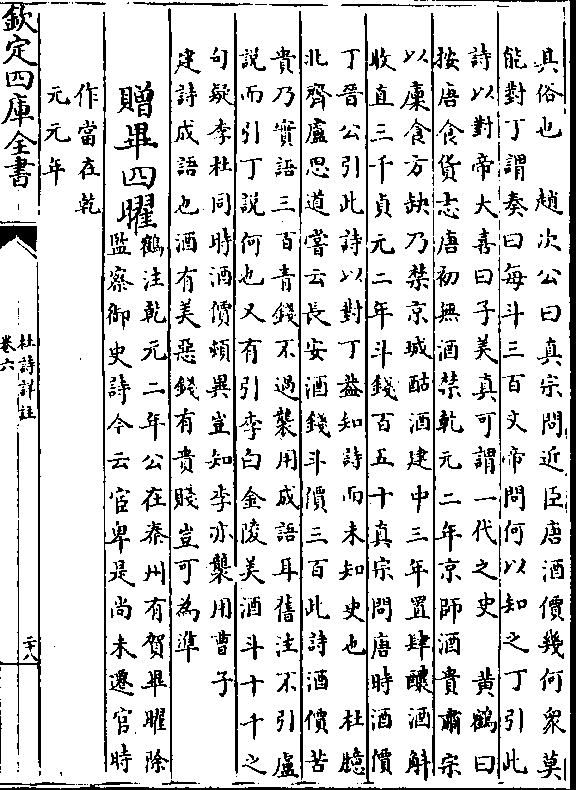 其俗也　趙次公曰真宗問近臣唐酒價幾何衆莫
能對丁謂奏曰每斗三百文帝問何以知之丁引此
詩以對帝大喜曰子美真可謂一代之史　黄鶴曰
按唐食貨志唐初無酒禁乾元二年京師酒貴肅宗
以廩食方缺乃禁京城酤酒建中三年置肆釀酒斛
收直三千貞元二年斗錢百五十真宗問唐時酒價
丁晉公引此詩以對丁葢知詩而未知史也　杜臆
北齊盧思道嘗云長安酒錢斗價三百此詩酒價苦
貴乃實語三百青錢不過襲用成語耳舊注不引盧
說而引丁說何也又有引李白金陵美酒斗十千之
句疑李杜同時酒價頓異豈知李亦襲用曹子
建詩成語也酒有美惡錢有貴賤豈可為準
贈畢四曜
鶴注乾元二年公在秦州有賀畢曜除
監察御史詩今云宦卑是尚未遷官時
作當在乾
元元年
欽定四庫全書
杜詩詳註
卷六
二十八